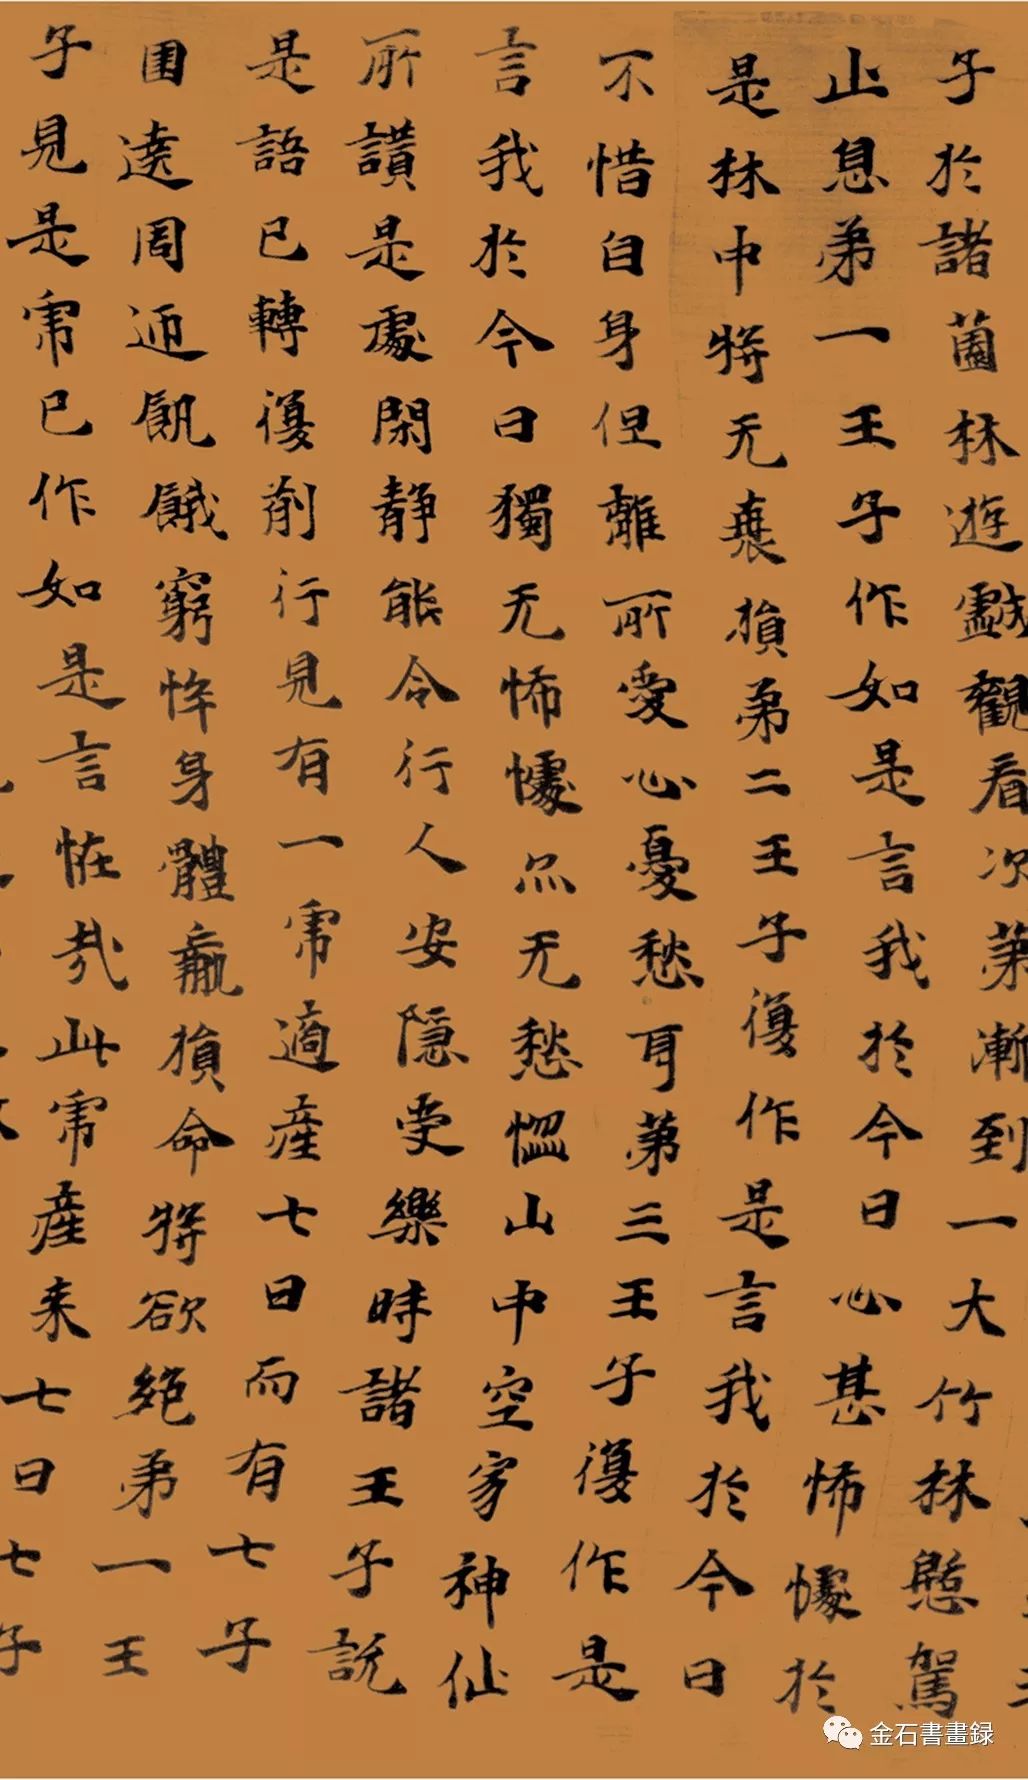 子於諸薗林遊戲觀看次第漸到一大竹林憩駕
止息弟一王子作如是言我於今日心甚怖懅於
是林中將无衰損弟二王子復作是言我於今日
不惜自身但離所愛心憂愁耳弟三王子復作是
言我於今日獨无怖懅亦无愁惱山中空寂神仙
所讃是處閑靜能令行人安隱受樂時諸王子說
是語已轉復前行見有一虎適產七日而有七子
圍遶周迊飢餓窮悴身體羸損命將欲絕弟一王
子見是虎已作如是言怪哉此虎產來七日七子
金石書畫録